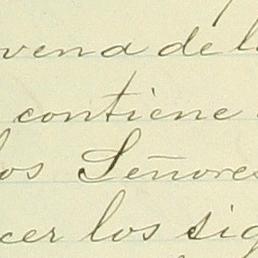 vena de l
contiene
los Señores
cer los sig